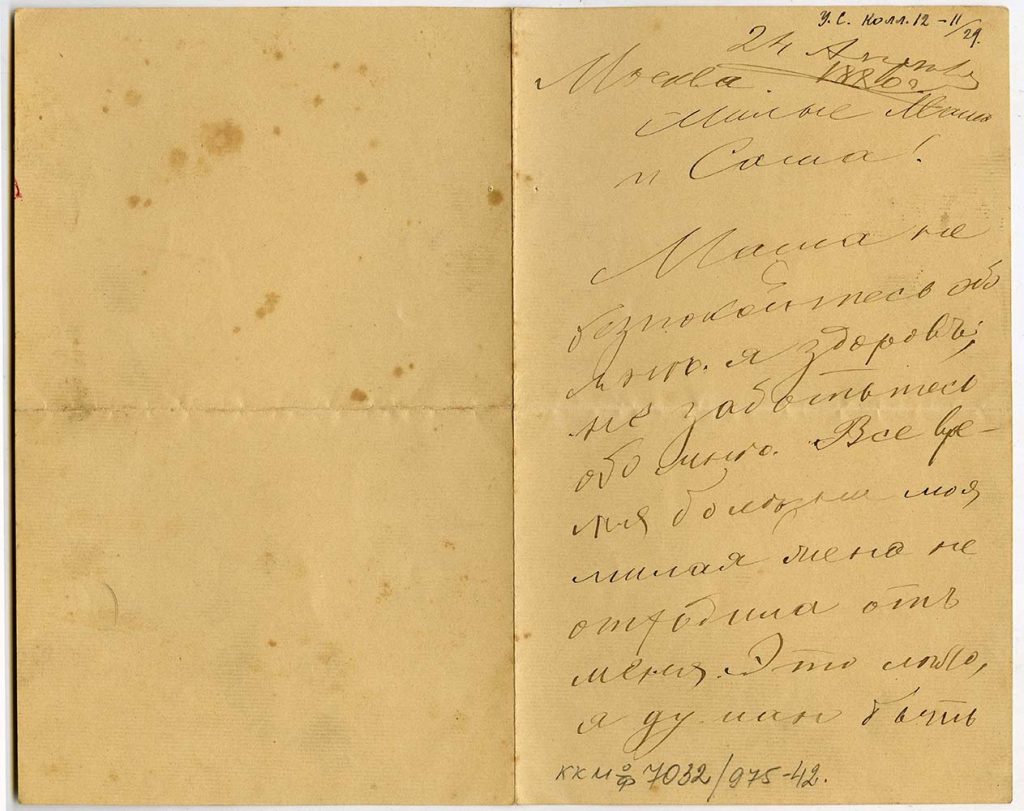 У.С. Колл. 12-11/29.
24 Апреля
Москва. 1886 г.
Милые Маша
и Саша!
Маша не
безпокойтесь обо
мнѣ. я здоровъ;
не заботьтесь
обо мнѣ. Все вре-
мя болѣзни моя
милая жена не
отходила отъ
меня. Это лѣто,
я думаю быть
ККМ оф 7032/975-42.